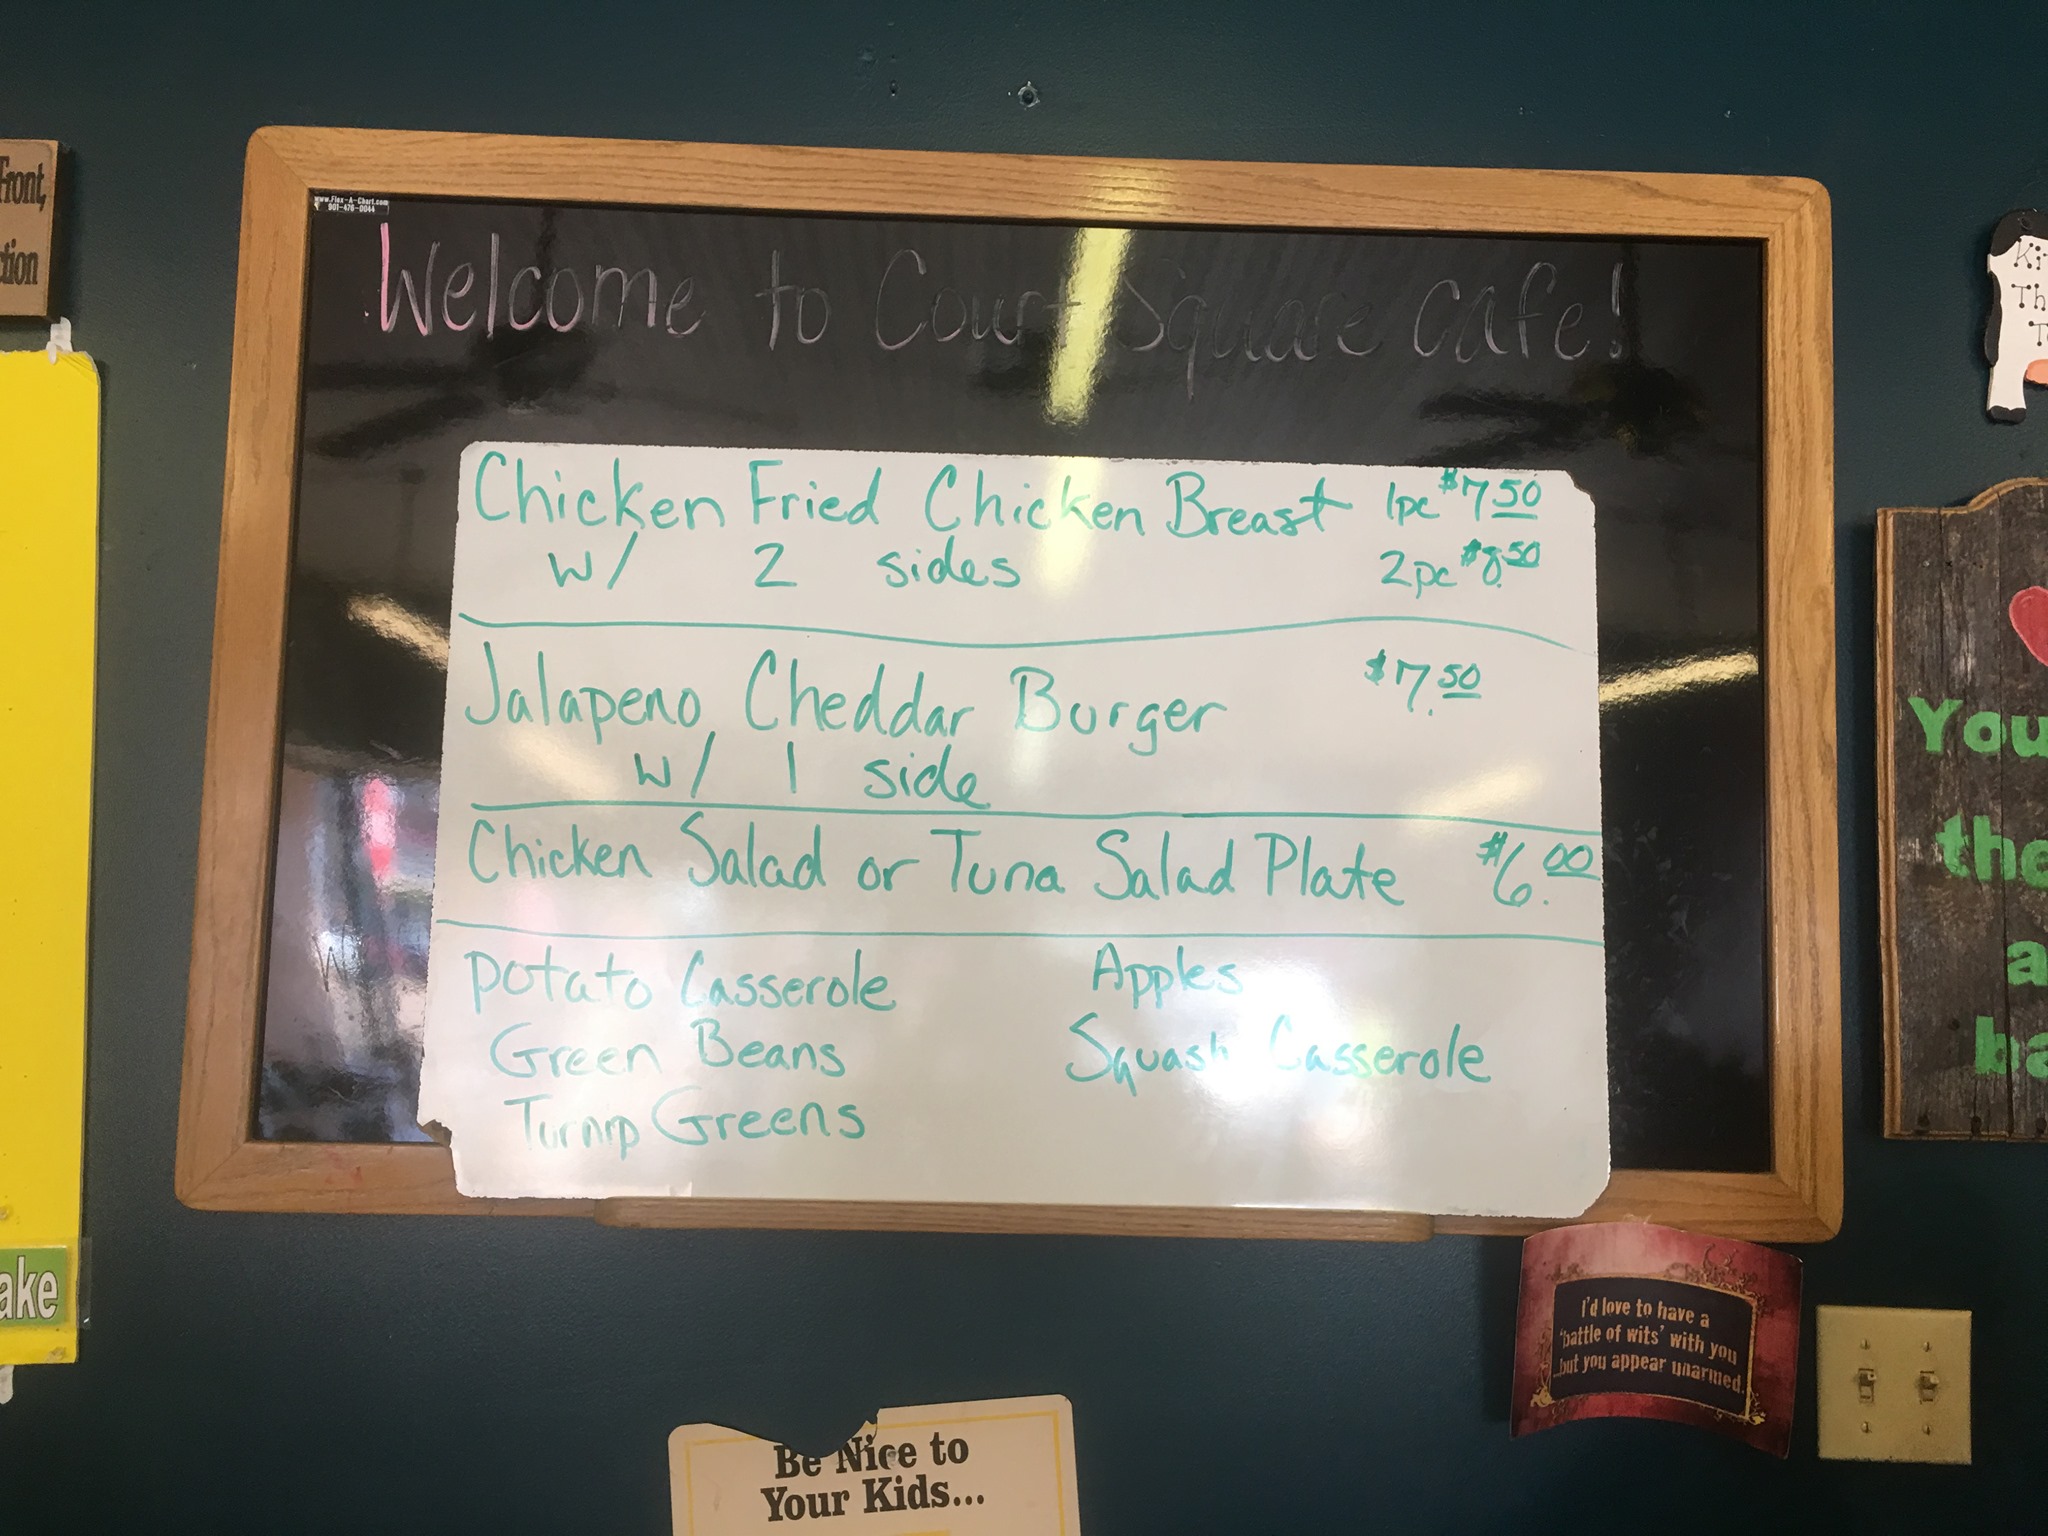 Front,
ction
www.Flex-A-Chart.com
901-476-0044
Welcome to Court Square Cafe!
Chicken Fried Chicken Breast 1pc $7.50
w/ 2 sides 2pc $8.50
Jalapeno Cheddar Burger $7.50
w/ 1 side
Chicken Salad or Tuna Salad Plate $6.00
Potato Casserole Apples
Green Beans Squash Casserole
Turnip Greens
Ki
Th
T
You
the
a
ba
ake
I'd love to have a
'battle of wits' with you
...but you appear unarmed.
Be Nice to
Your Kids...